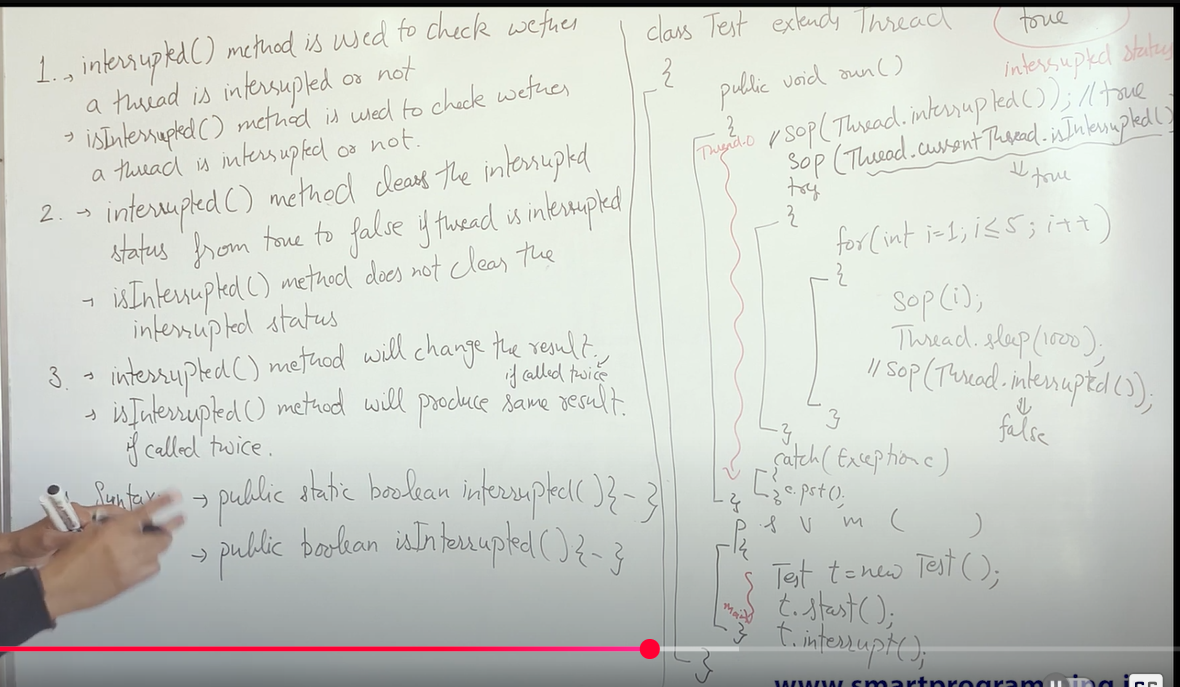 1. → interrupted() method is used to check wether
a thread is interrupted or not
→ isInterrupted() method is used to check wether
a thread is interrupted or not.
2. → interrupted() method clears the interrupted
status from true to false if thread is interrupted
→ isInterrupted() method does not clear the
interrupted status
3. → interrupted() method will change the result.,
if called twice
→ isInterrupted() method will produce same result.
if called twice.
Syntax → public static boolean interrupted(){-}
→ public boolean isInterrupted(){-}
class Test extends Thread
true
{
interrupted status
public void run()
{
Thread-0
// SOP(Thread.interrupted()); // true
SOP(Thread.currentThread.isInterrupted()
⇓ true
try
{
for(int i=1; i≤5; i++)
{
SOP(i);
Thread.sleep(1000);
// SOP(Thread.interrupted());
⇓
false
}
}
catch(Exception e)
{
} e.pst();
}
p s v m ( )
{
Test t=new Test();
main
t.start();
}
t.interrupt();
}